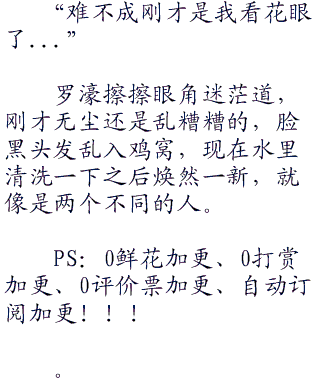 “难不成刚才是我看花眼
了...”
罗濠擦擦眼角迷茫道，
刚才无尘还是乱糟糟的，脸
黑头发乱入鸡窝，现在水里
清洗一下之后焕然一新，就
像是两个不同的人。
PS：0鲜花加更、0打赏
加更、0评价票加更、自动订
阅加更！！！
。